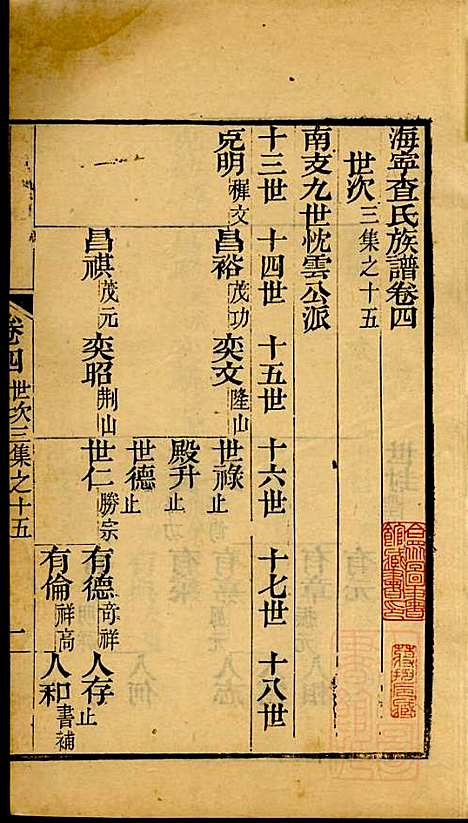 海寧查氏族譜卷四
世次三集之十五
南支九世忱雲公派
十三世 十四世 十五世 十六世 十七世 十八世
克明 穉文 昌裕 茂功 奕文 隆山 世祿 止
殿升 止
世德 止
昌祺 茂元 奕昭 荆山 世仁 勝宗 有德 奇祥 人存 止
有倫 祥高 人和 書補
卷四 世次三集之十五 一